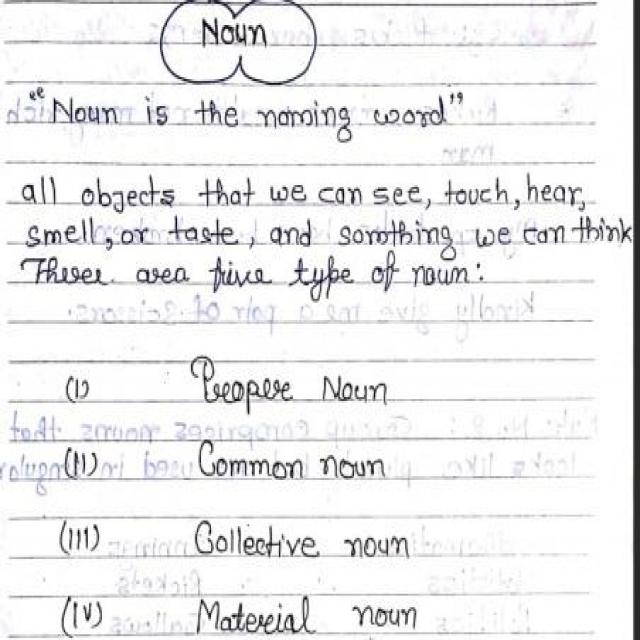 Noun
"Noun is the naming word"
all objects that we can see, touch, hear,
smell, or taste, and somthing we can think
There area five type of noun:
(I) Proper Noun
(II) Common noun
(III) Collective noun
(IV) Material noun